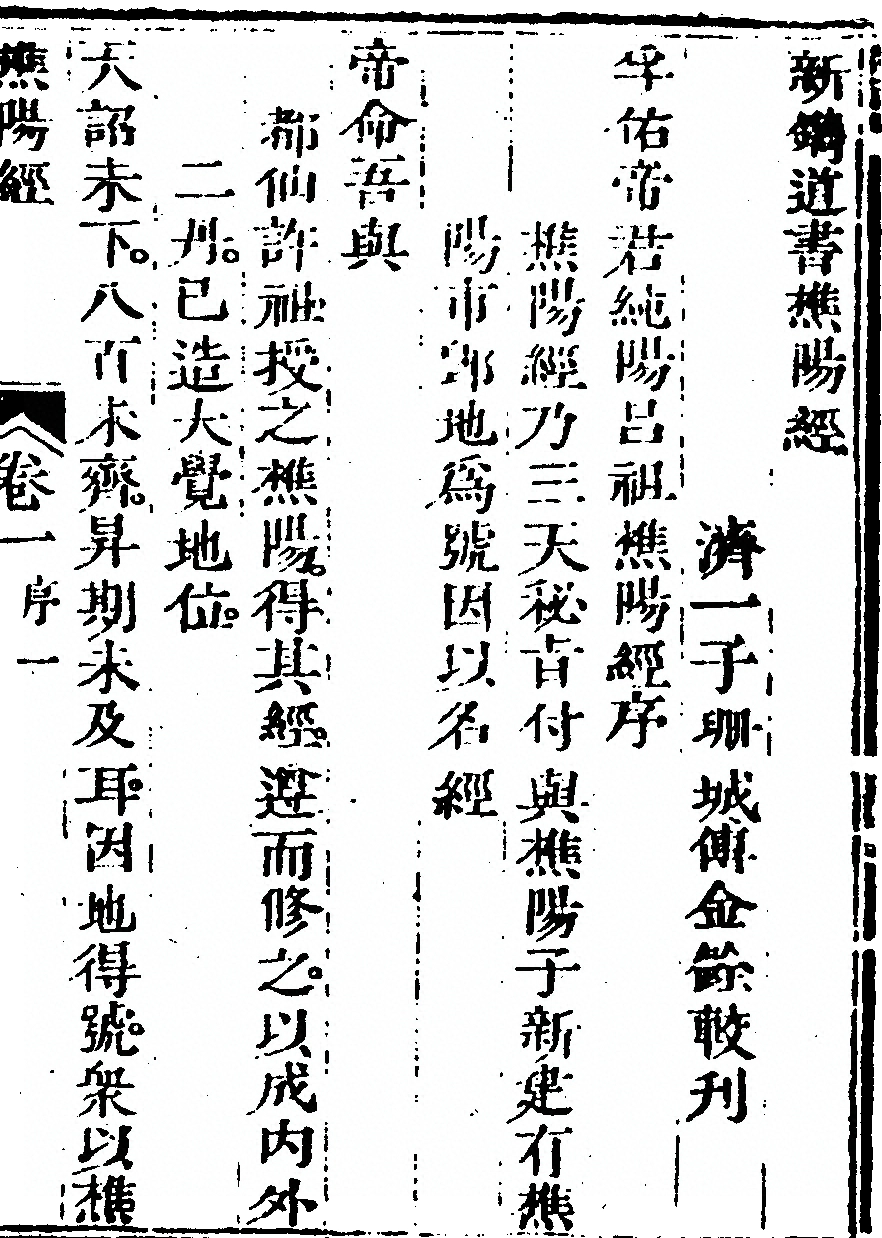 新鐫道書樵陽經
濟一子珊城傅金銓較刊
孚佑帝君純陽呂祖樵陽經序
樵陽經乃三天秘旨付與樵陽子新建有樵
陽市郭地爲號因以名經
帝命吾與
都仙許祖授之樵陽。得其經。遵而修之。以成內外
二丹。已造大覺地位。
天詔未下。八百未齊。昇期未及耳。因地得號。衆以樵
樵陽經 卷一 序 一